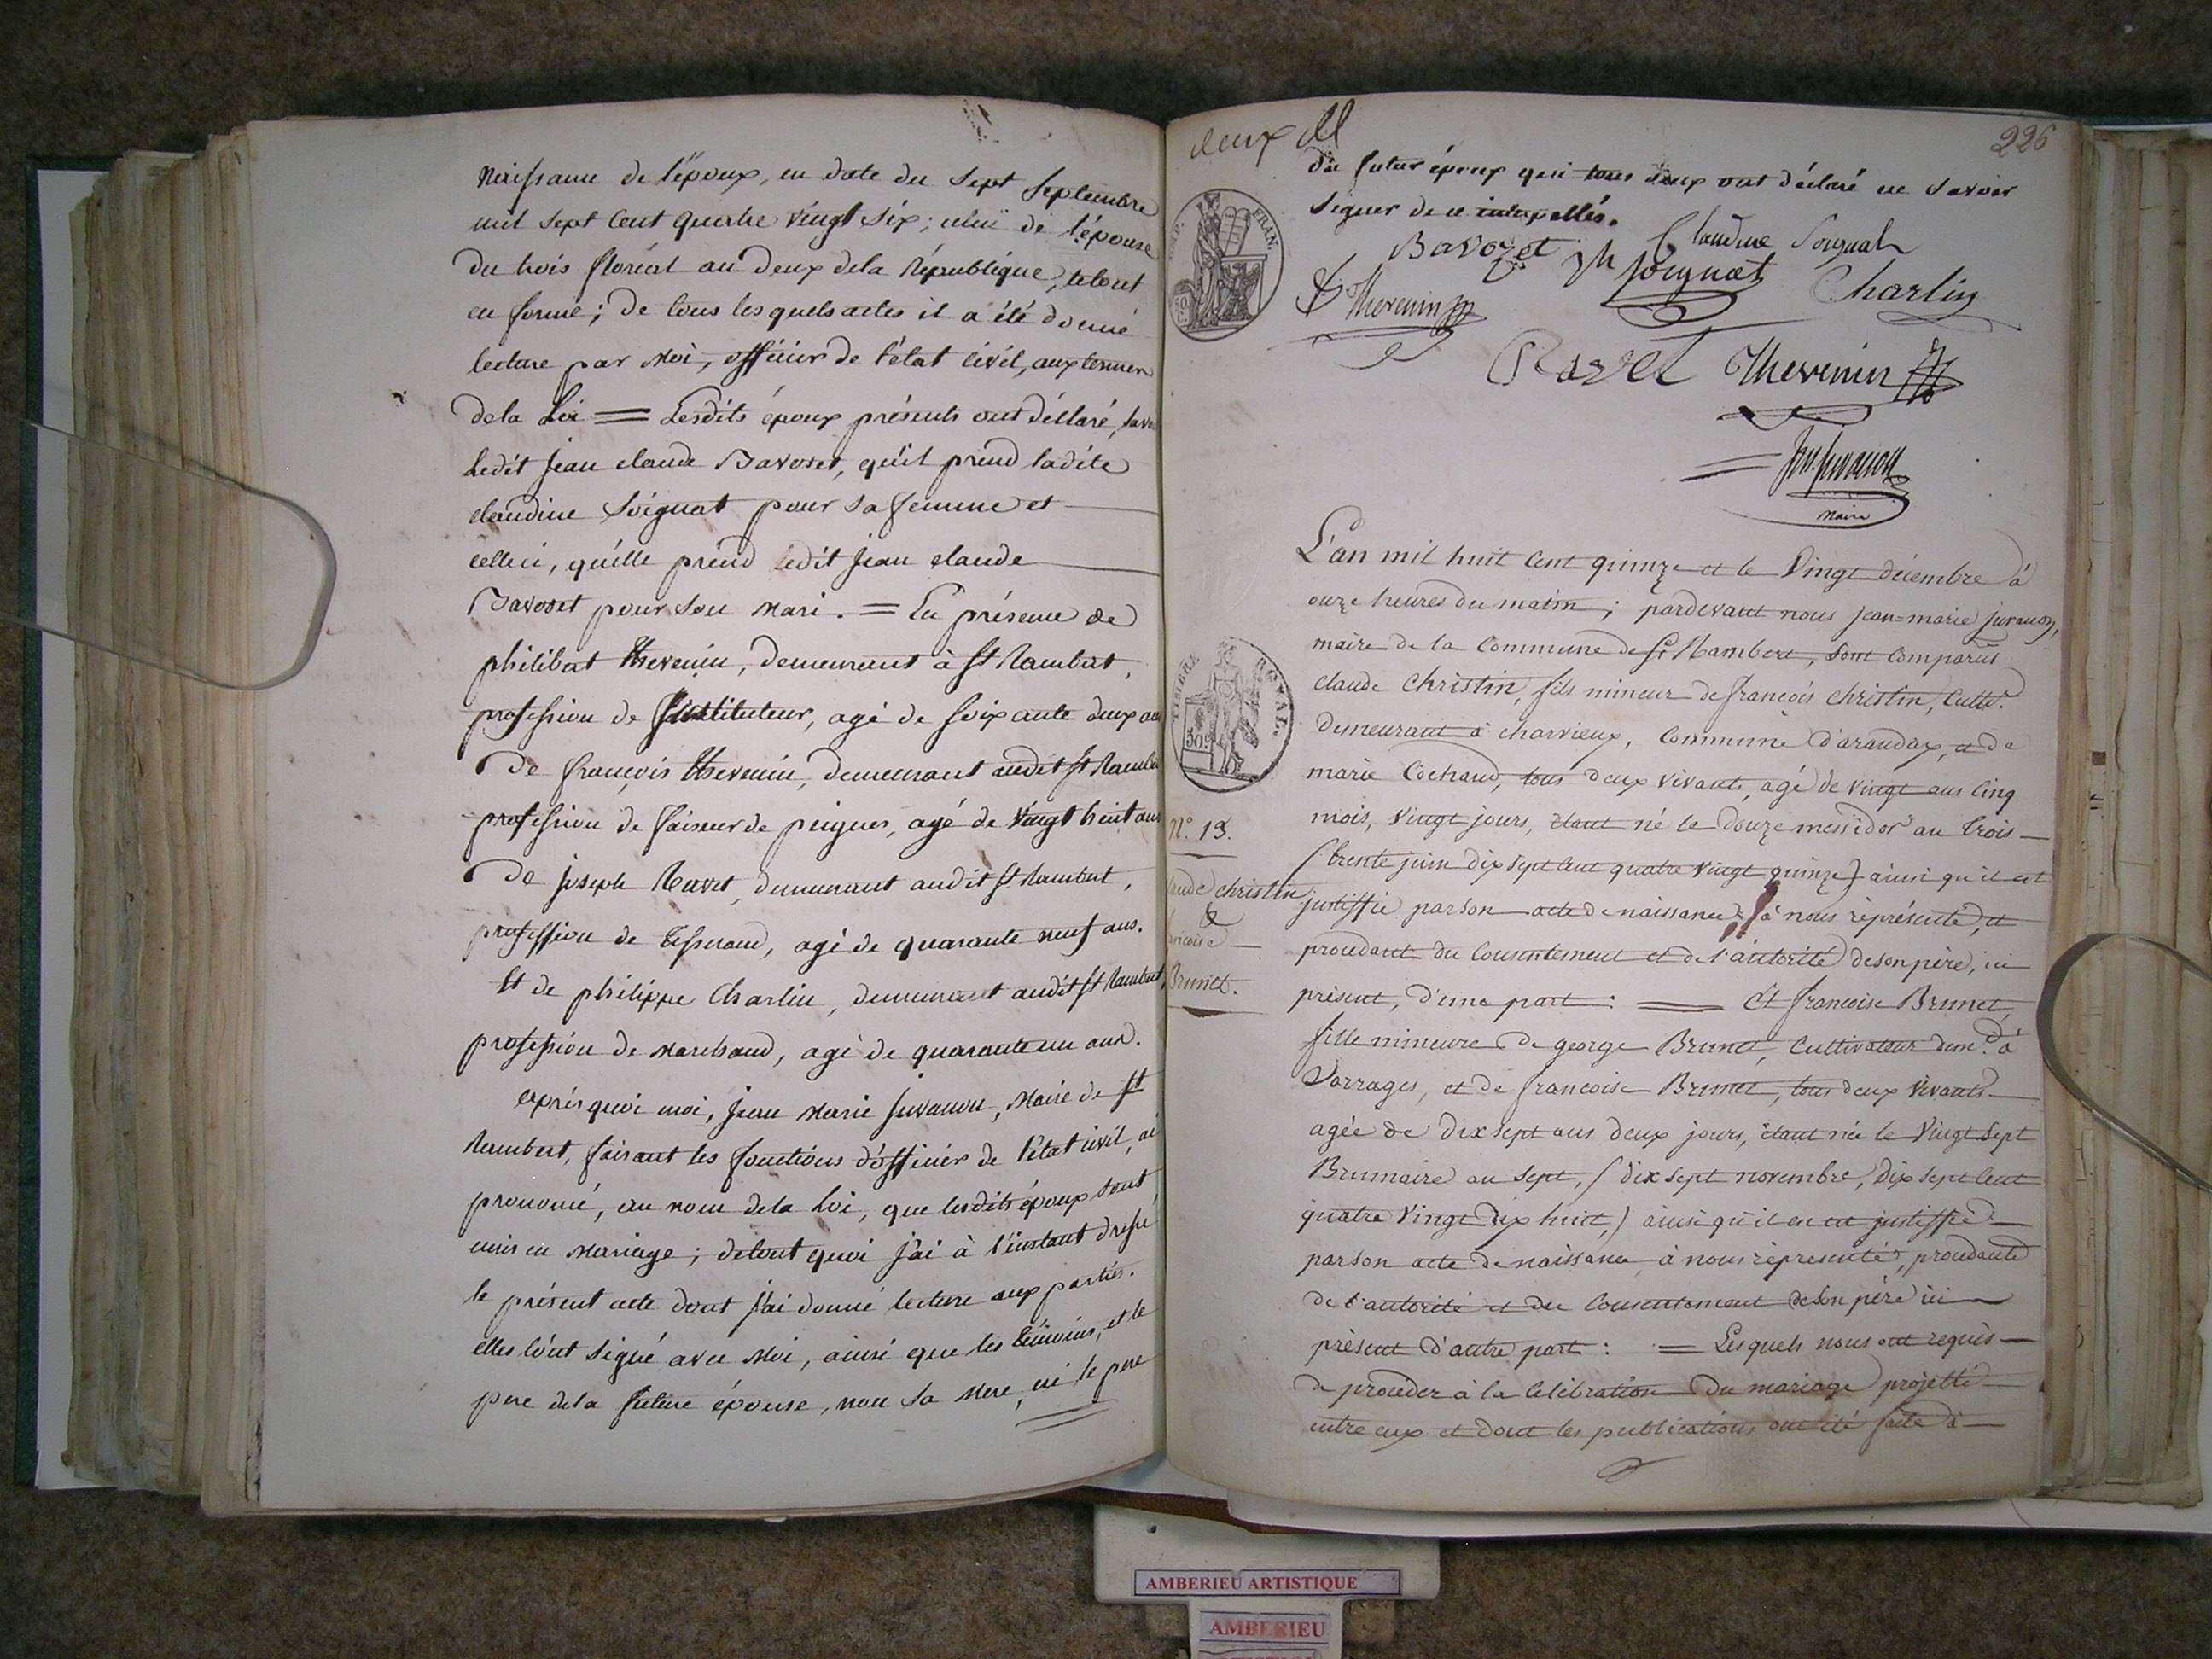 Naissance de l'époux, en date du sept septembre
mil sept cent quatre vingt six; celui de l'épouse
du trois floréal an deux dela République, letout
en forme; de tous lesquels actes il a été donné
lecture par Moi, officier de l'état civil, aux termes
dela Loi = Lesdits époux présents ont déclaré, savo
Ledit Jean claude Bavoset, qu'il prend ladite
claudine Soignat pour sa femme et
celleci, qu'elle prend ledit Jean claude
Bavoset pour son Mari. = En présence de
philibert thevenin, demeurant à St Rambert,
profession de Instituteur, agé de soixante deux ans
De françois thevenin, demeurant audit St Rambe
profession de faiseur de peignes, agé de vingt huit ans
De joseph Ravet, demeurant audit St Rambert,
profession de tisserand, agé de quarante neuf ans.
Et de philippe Charlin, demeurant audit St Rambert,
profession de Marchand, agé de quarante un ans.
après quoi moi, Jean Marie Juvanon, Maire de St
Rambert, faisant les fonctions d'officier de l'état civil, ai
prononcé, au nom dela Loi, que lesdits époux sont
unis en Mariage; detout quoi j'ai à l'instant dressé
le présent acte dont j'ai donné lecture aux parties.
elles l'ont signé avec Moi, ainsi que les témoins, et le
pere dela future épouse, non sa Mere, ni le pere
deux
226
du futur époux qui tous deux ont déclaré ne savoir
signer de ce interpellés.
Bavozet Claudine Soignat
Thevenin Soignat Charlin
Ravet Thevenin
Juvanon
Maire
L'an mil huit cent quinze et le Vingt décembre à
onze heures du matin; pardevant nous jean=marie juvanon,
maire de la Commune de St Rambert, sont comparus
claude Christin, fils mineur de francois christin, cultr.
demeurant à charvieux, Commune d'arandax, et de
marie Cochand, tous deux vivants, agé de vingt ans cinq
mois, vingt jours, étant né le douze messidor an trois
N.º 13.
(trente juin dix sept cent quatre vingt quinze) ainsi qu'il est
aude christin
&
ncoise
Brunet.
justiffié par son acte de naissance à nous représenté, et
procedant du Consentement et de l'autorité de son père, ici
présent, d'une part: = Et francoise Brunet,
fille mineure de george Brunet, Cultivateur dem.t à
Vorrages, et de francoise Brunet, tous deux vivants
agée de dix sept ans deux jours, étant née le Vingt sept
Brumaire an sept, (dix sept novembre, dix sept cent
quatre vingt dix huit,) ainsi qu'il en est justiffié
par son acte de naissance à nous représenté, procedante
de l'autorité et du Consentement de son père ici
présent d'autre part: = Lesquels nous ont requis
de proceder à la Célébration du mariage projetté
entre eux et dont les publications ont été faite à
AMBERIEU ARTISTIQUE
AMBERIEU